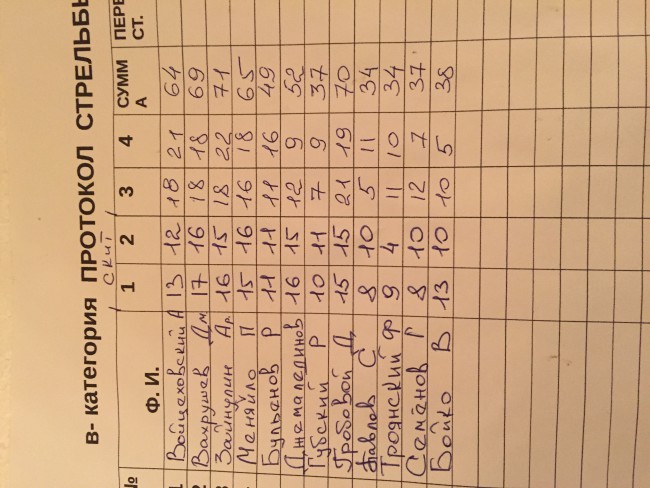 В- категория ПРОТОКОЛ СТРЕЛЬБЫ
скит
№ Ф. И. 1 2 3 4 СУММА ПЕРЕ СТ.
Войцеховский А 13 12 18 21 64
Вахрушев Дм 17 16 18 18 69
Зайнулин Ар 16 15 18 22 71
Меняйло П 15 16 16 18 65
Бульенов Р 11 11 11 16 49
Джемалединов 16 15 12 9 52
Губский Р 10 11 7 9 37
Гробовой Д 15 15 21 19 70
Павлов С 8 10 5 11 34
Троянский Ф 9 4 11 10 34
Семёнов Г 8 10 12 7 37
Бойко В 13 10 10 5 38